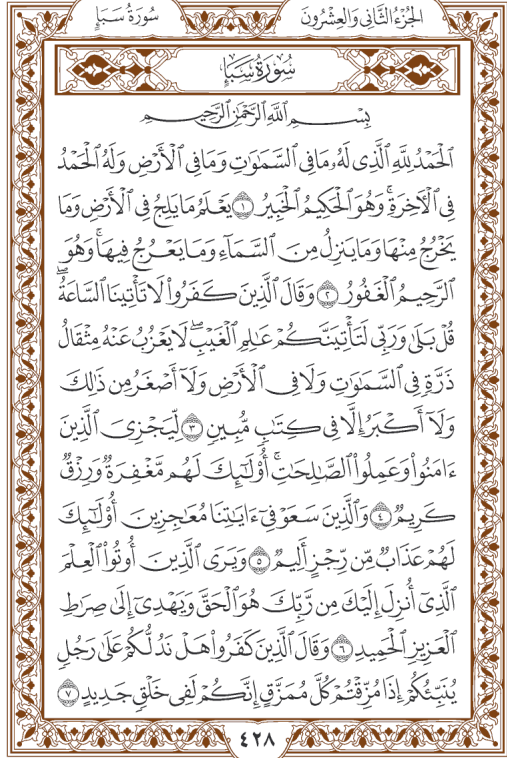 سُورَةُ سَبَإٍ
الجُزْءُ الثَّانِي وَالعِشْرُونَ
سُورَةُ سَبَإٍ
بِسْمِ ٱللَّهِ ٱلرَّحْمَٰنِ ٱلرَّحِيمِ
ٱلْحَمْدُ لِلَّهِ ٱلَّذِى لَهُۥ مَا فِى ٱلسَّمَٰوَٰتِ وَمَا فِى ٱلْأَرْضِ وَلَهُ ٱلْحَمْدُ
فِى ٱلْأَخِرَةِ ۚ وَهُوَ ٱلْحَكِيمُ ٱلْخَبِيرُ ١ يَعْلَمُ مَا يَلِجُ فِى ٱلْأَرْضِ وَمَا
يَخْرُجُ مِنْهَا وَمَا يَنزِلُ مِنَ ٱلسَّمَآءِ وَمَا يَعْرُجُ فِيهَا ۚ وَهُوَ
ٱلرَّحِيمُ ٱلْغَفُورُ ٢ وَقَالَ ٱلَّذِينَ كَفَرُوا۟ لَا تَأْتِينَا ٱلسَّاعَةُ ۖ
قُلْ بَلَىٰ وَرَبِّى لَتَأْتِيَنَّكُمْ عَٰلِمِ ٱلْغَيْبِ ۖ لَا يَعْزُبُ عَنْهُ مِثْقَالُ
ذَرَّةٍ فِى ٱلسَّمَٰوَٰتِ وَلَا فِى ٱلْأَرْضِ وَلَآ أَصْغَرُ مِن ذَٰلِكَ
وَلَآ أَكْبَرُ إِلَّا فِى كِتَٰبٍ مُّبِينٍ ٣ لِّيَجْزِىَ ٱلَّذِينَ
ءَامَنُوا۟ وَعَمِلُوا۟ ٱلصَّٰلِحَٰتِ ۚ أُو۟لَٰٓئِكَ لَهُم مَّغْفِرَةٌ وَرِزْقٌ
كَرِيمٌ ٤ وَٱلَّذِينَ سَعَوْ فِىٓ ءَايَٰتِنَا مُعَٰجِزِينَ أُو۟لَٰٓئِكَ
لَهُمْ عَذَابٌ مِّن رِّجْزٍ أَلِيمٌ ٥ وَيَرَى ٱلَّذِينَ أُوتُوا۟ ٱلْعِلْمَ
ٱلَّذِىٓ أُنزِلَ إِلَيْكَ مِن رَّبِّكَ هُوَ ٱلْحَقَّ وَيَهْدِىٓ إِلَىٰ صِرَٰطِ
ٱلْعَزِيزِ ٱلْحَمِيدِ ٦ وَقَالَ ٱلَّذِينَ كَفَرُوا۟ هَلْ نَدُلُّكُمْ عَلَىٰ رَجُلٍ
يُنَبِّئُكُمْ إِذَا مُزِّقْتُمْ كُلَّ مُمَزَّقٍ إِنَّكُمْ لَفِى خَلْقٍ جَدِيدٍ ٧
٤٢٨